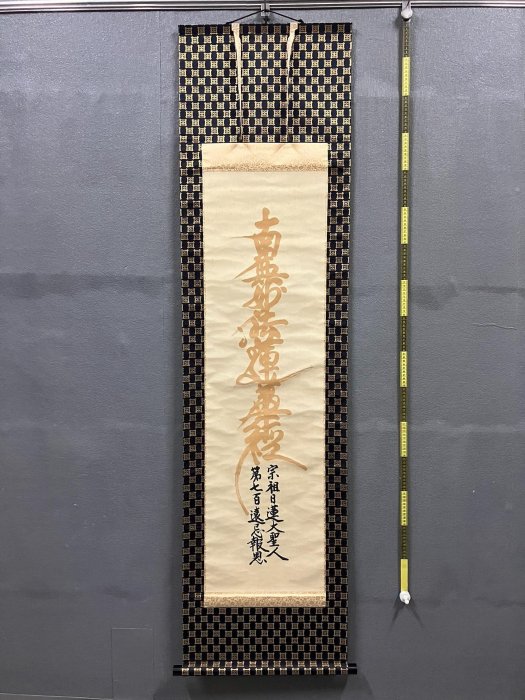 南無妙法蓮華経
宗祖日蓮大聖人
第七百遠忌報恩